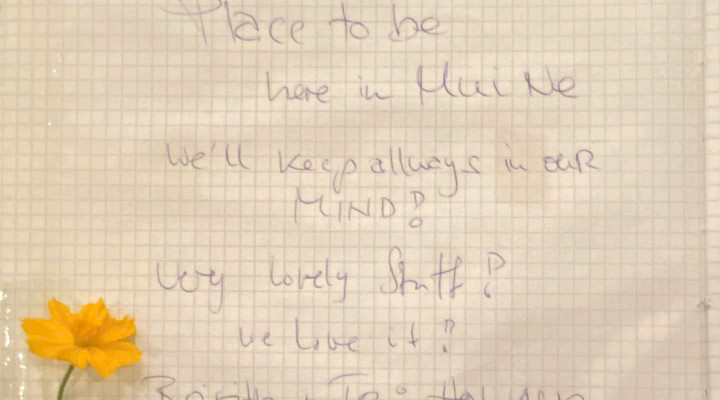 Place to be
here in Mui Ne
we'll keep allways in our
MIND!
Very lovely Staff!
we love it!